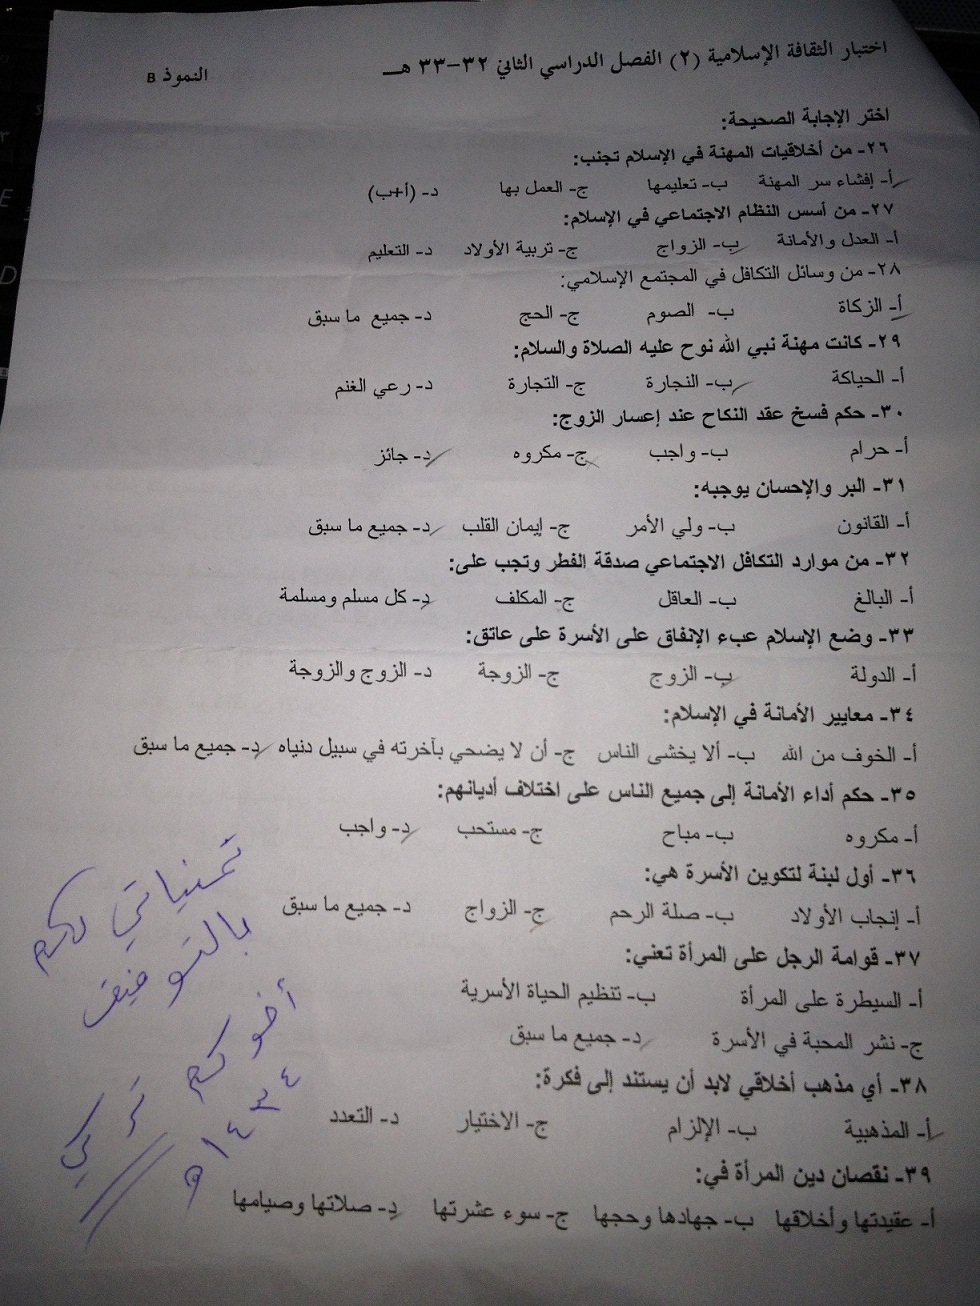 اختبار الثقافة الإسلامية (٢) الفصل الدراسي الثاني ٣٢-٣٣ هـ
النموذ B
اختر الإجابة الصحيحة:
٢٦- من أخلاقيات المهنة في الإسلام تجنب:
أ- إفشاء سر المهنة ب- تعليمها ج- العمل بها د- (أ+ب)
٢٧- من أسس النظام الاجتماعي في الإسلام:
أ- العدل والأمانة ب- الزواج ج- تربية الأولاد د- التعليم
٢٨- من وسائل التكافل في المجتمع الإسلامي:
أ- الزكاة ب- الصوم ج- الحج د- جميع ما سبق
٢٩- كانت مهنة نبي الله نوح عليه الصلاة والسلام:
أ- الحياكة ب- النجارة ج- التجارة د- رعي الغنم
٣٠- حكم فسخ عقد النكاح عند إعسار الزوج:
أ- حرام ب- واجب ج- مكروه د- جائز
٣١- البر والإحسان يوجبه:
أ- القانون ب- ولي الأمر ج- إيمان القلب د- جميع ما سبق
٣٢- من موارد التكافل الاجتماعي صدقة الفطر وتجب على:
أ- البالغ ب- العاقل ج- المكلف د- كل مسلم ومسلمة
٣٣- وضع الإسلام عبء الإنفاق على الأسرة على عاتق:
أ- الدولة ب- الزوج ج- الزوجة د- الزوج والزوجة
٣٤- معايير الأمانة في الإسلام:
أ- الخوف من الله ب- ألا يخشى الناس ج- أن لا يضحي بآخرته في سبيل دنياه د- جميع ما سبق
٣٥- حكم أداء الأمانة إلى جميع الناس على اختلاف أديانهم:
أ- مكروه ب- مباح ج- مستحب د- واجب
٣٦- أول لبنة لتكوين الأسرة هي:
أ- إنجاب الأولاد ب- صلة الرحم ج- الزواج د- جميع ما سبق
٣٧- قوامة الرجل على المرأة تعني:
أ- السيطرة على المرأة ب- تنظيم الحياة الأسرية
ج- نشر المحبة في الأسرة د- جميع ما سبق
٣٨- أي مذهب أخلاقي لابد أن يستند إلى فكرة:
أ- المذهبية ب- الإلزام ج- الاختيار د- التعدد
٣٩- نقصان دين المرأة في:
أ- عقيدتها وأخلاقها ب- جهادها وحجها ج- سوء عشرتها د- صلاتها وصيامها
تمنياتي لكم
بالتوفيق
أخوكم تركي
١٤٣٤ه